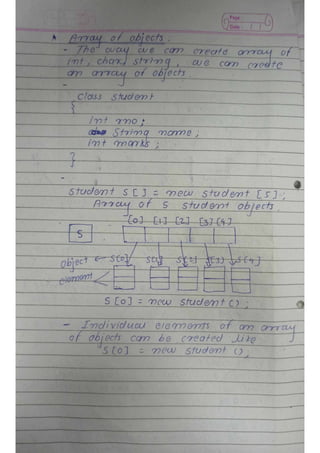 Page:
Date: / /
* Array of objects.
- The way we can create array of
int, char, string, we can create
an array of objects.
-
class student
{
int rno;
String name;
int marks;
}
-
student S[] = new student[5];
Array of 5 student objects.
[0] [1] [2] [3] [4]
S
object ← S[0] S[1] S[2] S[3] S[4]
element
S[0] = new student();
- Individual elements of an array
of objects can be created like
S[0] = new student();